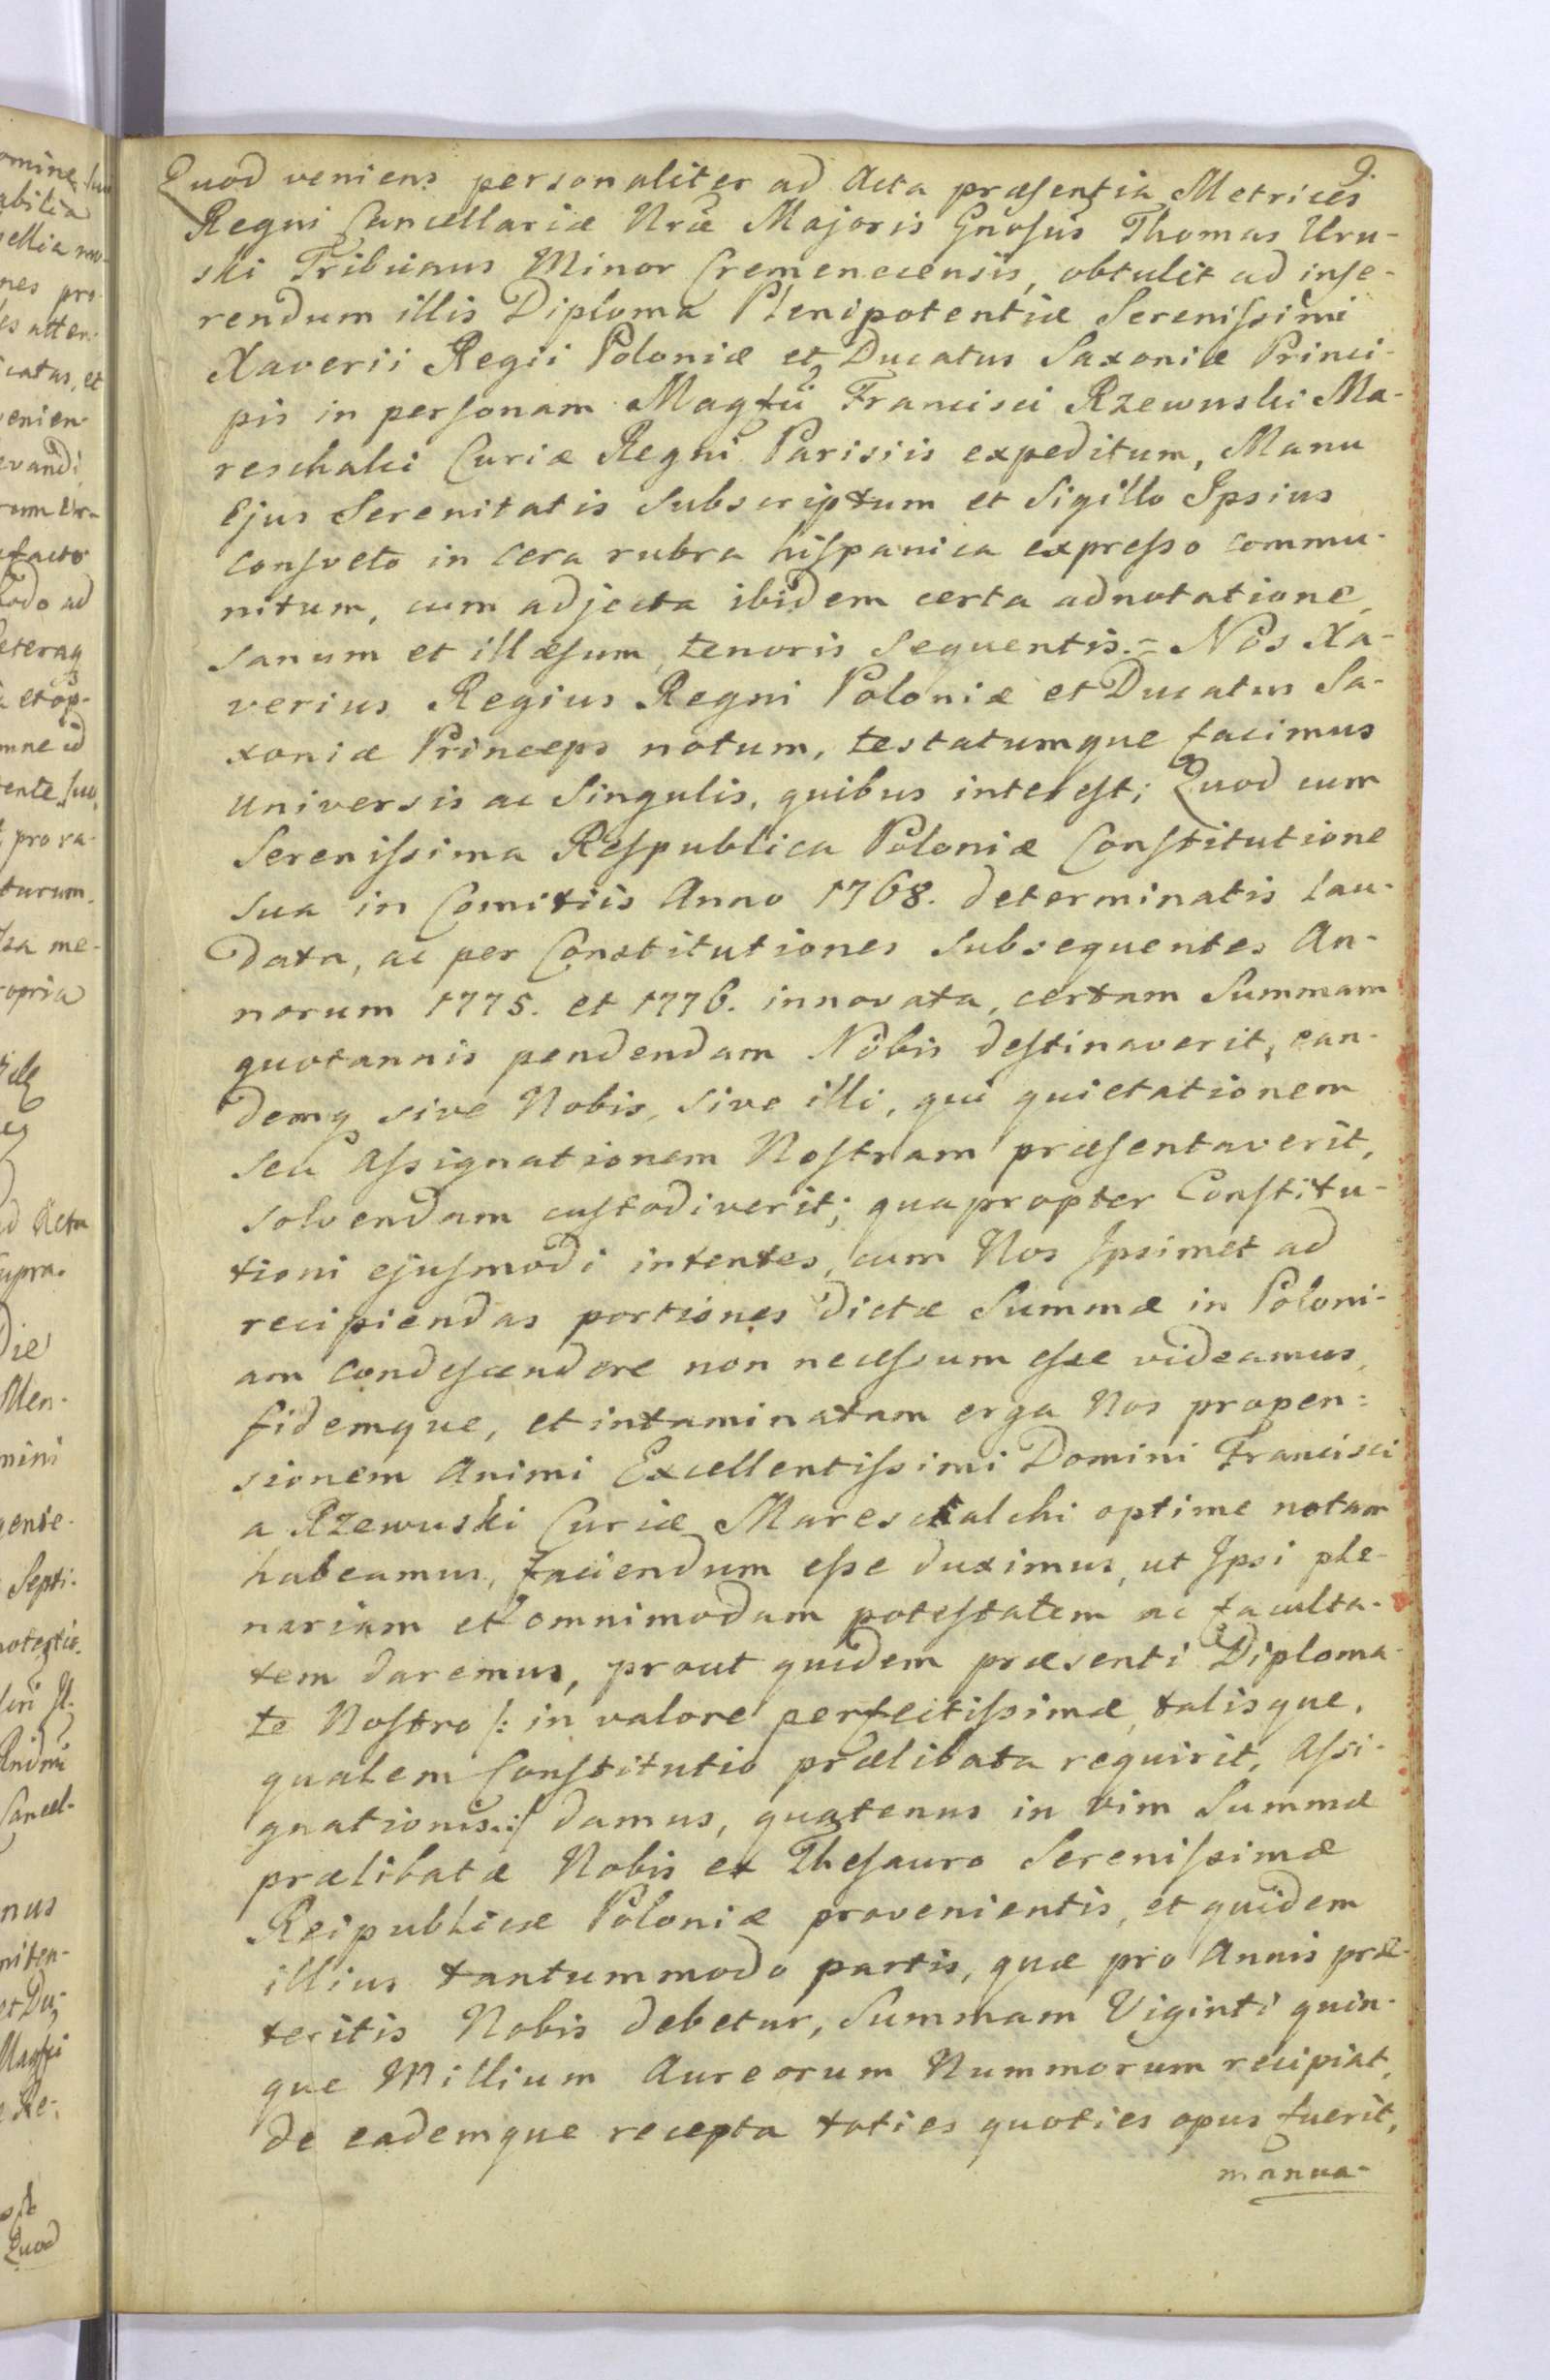 9.
Quod veniens personaliter ad Acta præsentia Metrices
Regni Cancellariæ Nræ Majoris Gnosus Thomas Uru-
ski Tribunus Minor Cremenecensis, obtulit ad inse-
rendum illis Diploma Plenipotentiæ Serenissimi
Xaverii Regii Poloniæ et Ducatus Saxoniæ Princi-
pis in personam Magfci Francisci Rzewuski Ma-
reschalci Curiæ Regni Parisiis expeditum, Manu
Ejus Serenitatis Subscriptum et Sigillo Ipsius
consveto in cera rubra hispanica expresso commu-
nitum, cum adjecta ibidem certa adnotatione,
sanum et illæsum, tenoris sequentis.= Nos Xa-
verius Regius Regni Poloniæ et Ducatus Sa-
xoniæ Princeps notum, testatumque facimus
Universis ac Singulis, quibus interest; Quod cum
Serenissima Respublica Poloniæ Constitutione
Sua in Comitiis Anno 1768. determinatis lau-
data, ac per Constitutiones Subsequentes An-
norum 1775. et 1776. innovata, certam Summam
quotannis pendendam Nobis destinaverit, ean-
demq sive Nobis, sive illi, qui quietationem
seu Assignationem Nostram præsentaverit,
solvendam custodiverit; quapropter Constitu-
tioni ejusmodi intentes, cum Nos Ipsimet ad
recipiendas portiones dictæ Summæ in Poloni-
am condescendere non necessum esse videamus,
fidemque, et intaminatam erga Nos propen=
sionem Animi Excellentissimi Domini Francisci
a Rzewuski Curiæ Mareschalchi optime notam
habeamus, faciendum esse duximus, ut Ipsi ple-
nariam et omnimodam potestatem ac faculta-
tem daremus, prout quidem præsenti Diploma-
te Nostro /: in valore perfectissimæ, talisque,
qualem Constitutio prælibata requirit, Assi-
gnationis :/ damus, quatenus in vim Summæ
prælibatæ Nobis ex Thesauro Serenissimæ
Reipublicæ Poloniæ provenientis, et quidem
illius tantummodo partis, quæ pro Annis præ-
teritis Nobis debetur, Summam Viginti quin-
que Millium Aureorum Nummorum recipiat,
de eademque recepta toties quoties opus fuerit,
manua-